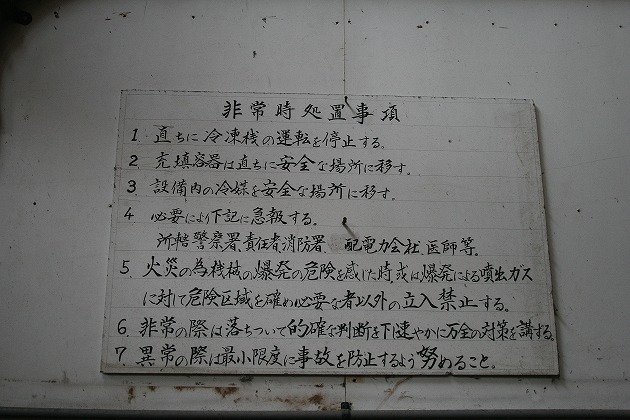 非常時処置事項
1. 直ちに冷凍桟の運転を停止する。
2. 充填容器は直ちに安全な場所に移す。
3. 設備内の冷媒を安全な場所に移す。
4. 必要により下記に急報する。
所轄警察署、責任者消防署、配電力会社、医師等。
5. 火災の為桟械の爆発の危険を感じた時或は爆発による噴出ガス
に対して危険区域を確め必要な者以外の立入禁止する。
6. 非常の際は落ちついて的確な判断を下し速やかに万全の対策を講する。
7. 異常の際は最小限度に事故を防止するよう努めること。